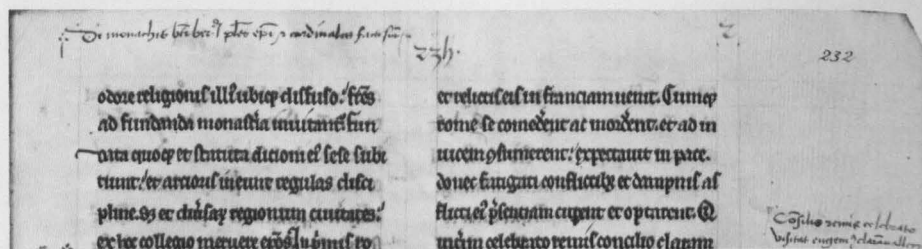 De monachis bti ber. plres epi 7 cardinales facti sūt
23h.
2
232
odore religionis illiꝰ ubiqꝫ diffuso: frēs
ad fundanda monastia inuitant. fun
data quoqꝫ et statuta dicioni eiꝰ sese subi
ciunt: et artioris ineunt regulas disci
pline. sꝫ et diūsaꝝ regionum ciuitates:
ex hoc collegio meruere ep̄os. In primis ro
et relictis eis in franciam uenit. Cumqꝫ
rome se comederent ac morderent. et ad in
uicem ꝯsumerent: expectauit in pace.
donec fatigati conflictibꝫ et dampnis af
flicti eiꝰ p̄sentiam cuperent et optarent. Q
celebrato remis concilio claram
Cōsilio remis celebrato
visitat eugeniꝰ